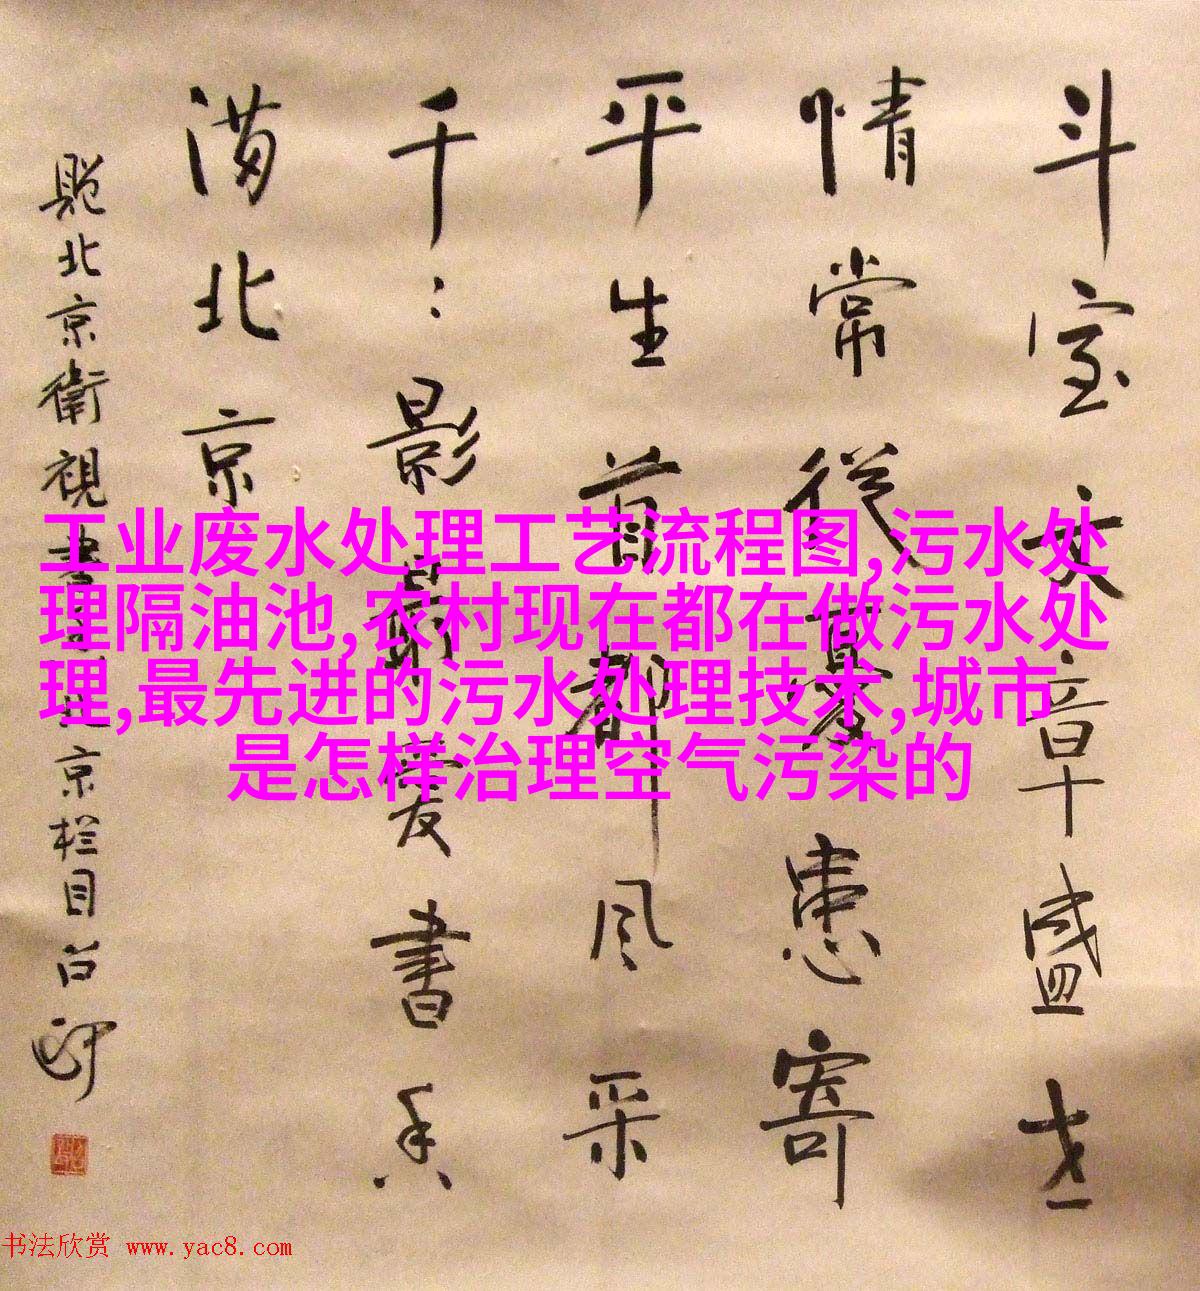 斗室文章盛世
情常從憂患寄
平生首都风采
千:影最愛書香
满北京
北京衛視書香北京栏目
工业废水处理工艺流程图,污水处
理隔油池,农村现在都在做污水处
理,最先进的污水处理技术,城市
是怎样治理空气污染的
书法欣赏 www.yac8.com